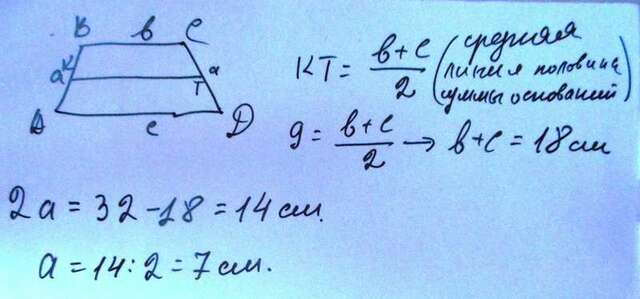 B в C
K
a a
T
A D
c
KT = в+c/2 (средняя линия половина суммы оснований)
9 = в+c/2 → в+c = 18 см
2a = 32 - 18 = 14 см.
a = 14 : 2 = 7 см.